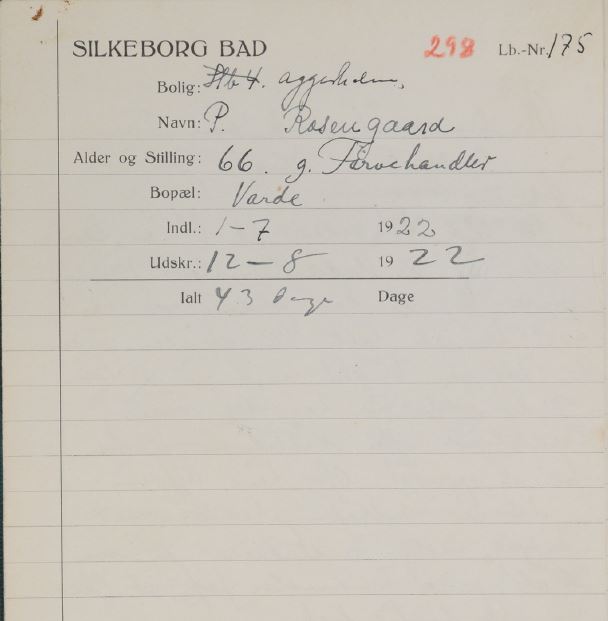 SILKEBORG BAD 298 Lb.-Nr. 175
Bolig: Aggersholm,
Navn: P. Rosengaard
Alder og Stilling: 66. g. Farvehandler
Bopæl: Varde
Indl.: 1-7 1922
Udskr.: 12-8 1922
Ialt 43 Dage Dage